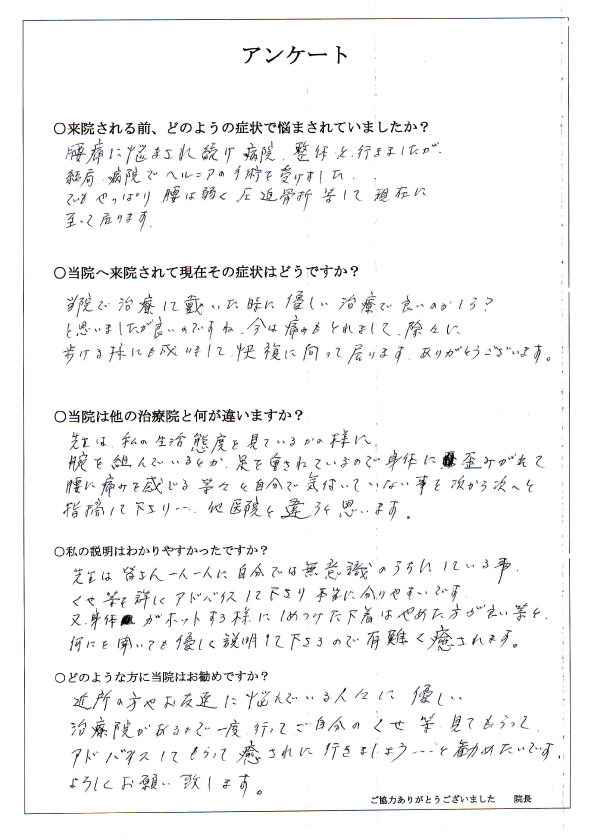 アンケート
○来院される前、どのようの症状で悩まされていましたか?
腰痛に悩まされ続け病院、整体と行きましたが、
結局、病院でヘルニアの手術を受けました、
でもやっぱり腰は弱く圧迫骨折等して現在に
至って居ります。
○当院へ来院されて現在その症状はどうですか?
当院で治療して戴いた時に優しい治療で良いのかしら?
と思いましたが良いのですね、今は痛みもとれまして、除々に
歩ける様にも成りまして、快復に向って居ります、ありがとうございます。
○当院は他の治療院と何が違いますか?
先生は、私の生活態度を見ているかの様に、
腕を組んでいるとか、足を重されているので身体に歪みがでて
腰に痛みを感じる等々と自分で気付いていない事を次から次へと
指摘して下さり…、他医院と違うと思います。
○私の説明はわかりやすかったですか?
先生は皆さん一人一人に自分では無意識のうちにしている事、
くせ等を詳しくアドバイスして下さり本当に分りやすいです。
又、身体がホットする様にしめつけた下着はやめた方が良い等を、
何にを聞いても優しく説明して下さるので有難く癒されます。
○どのような方に当院はお勧めですか?
近所の方やお友達に悩んでいる人々に優しい
治療院があるので一度、行ってご自分のくせ等、見てもらって、
アドバイスしてもらって癒されに行きましょう……と勧めたいです、
よろしくお願い致します。
ご協力ありがとうございました 院長